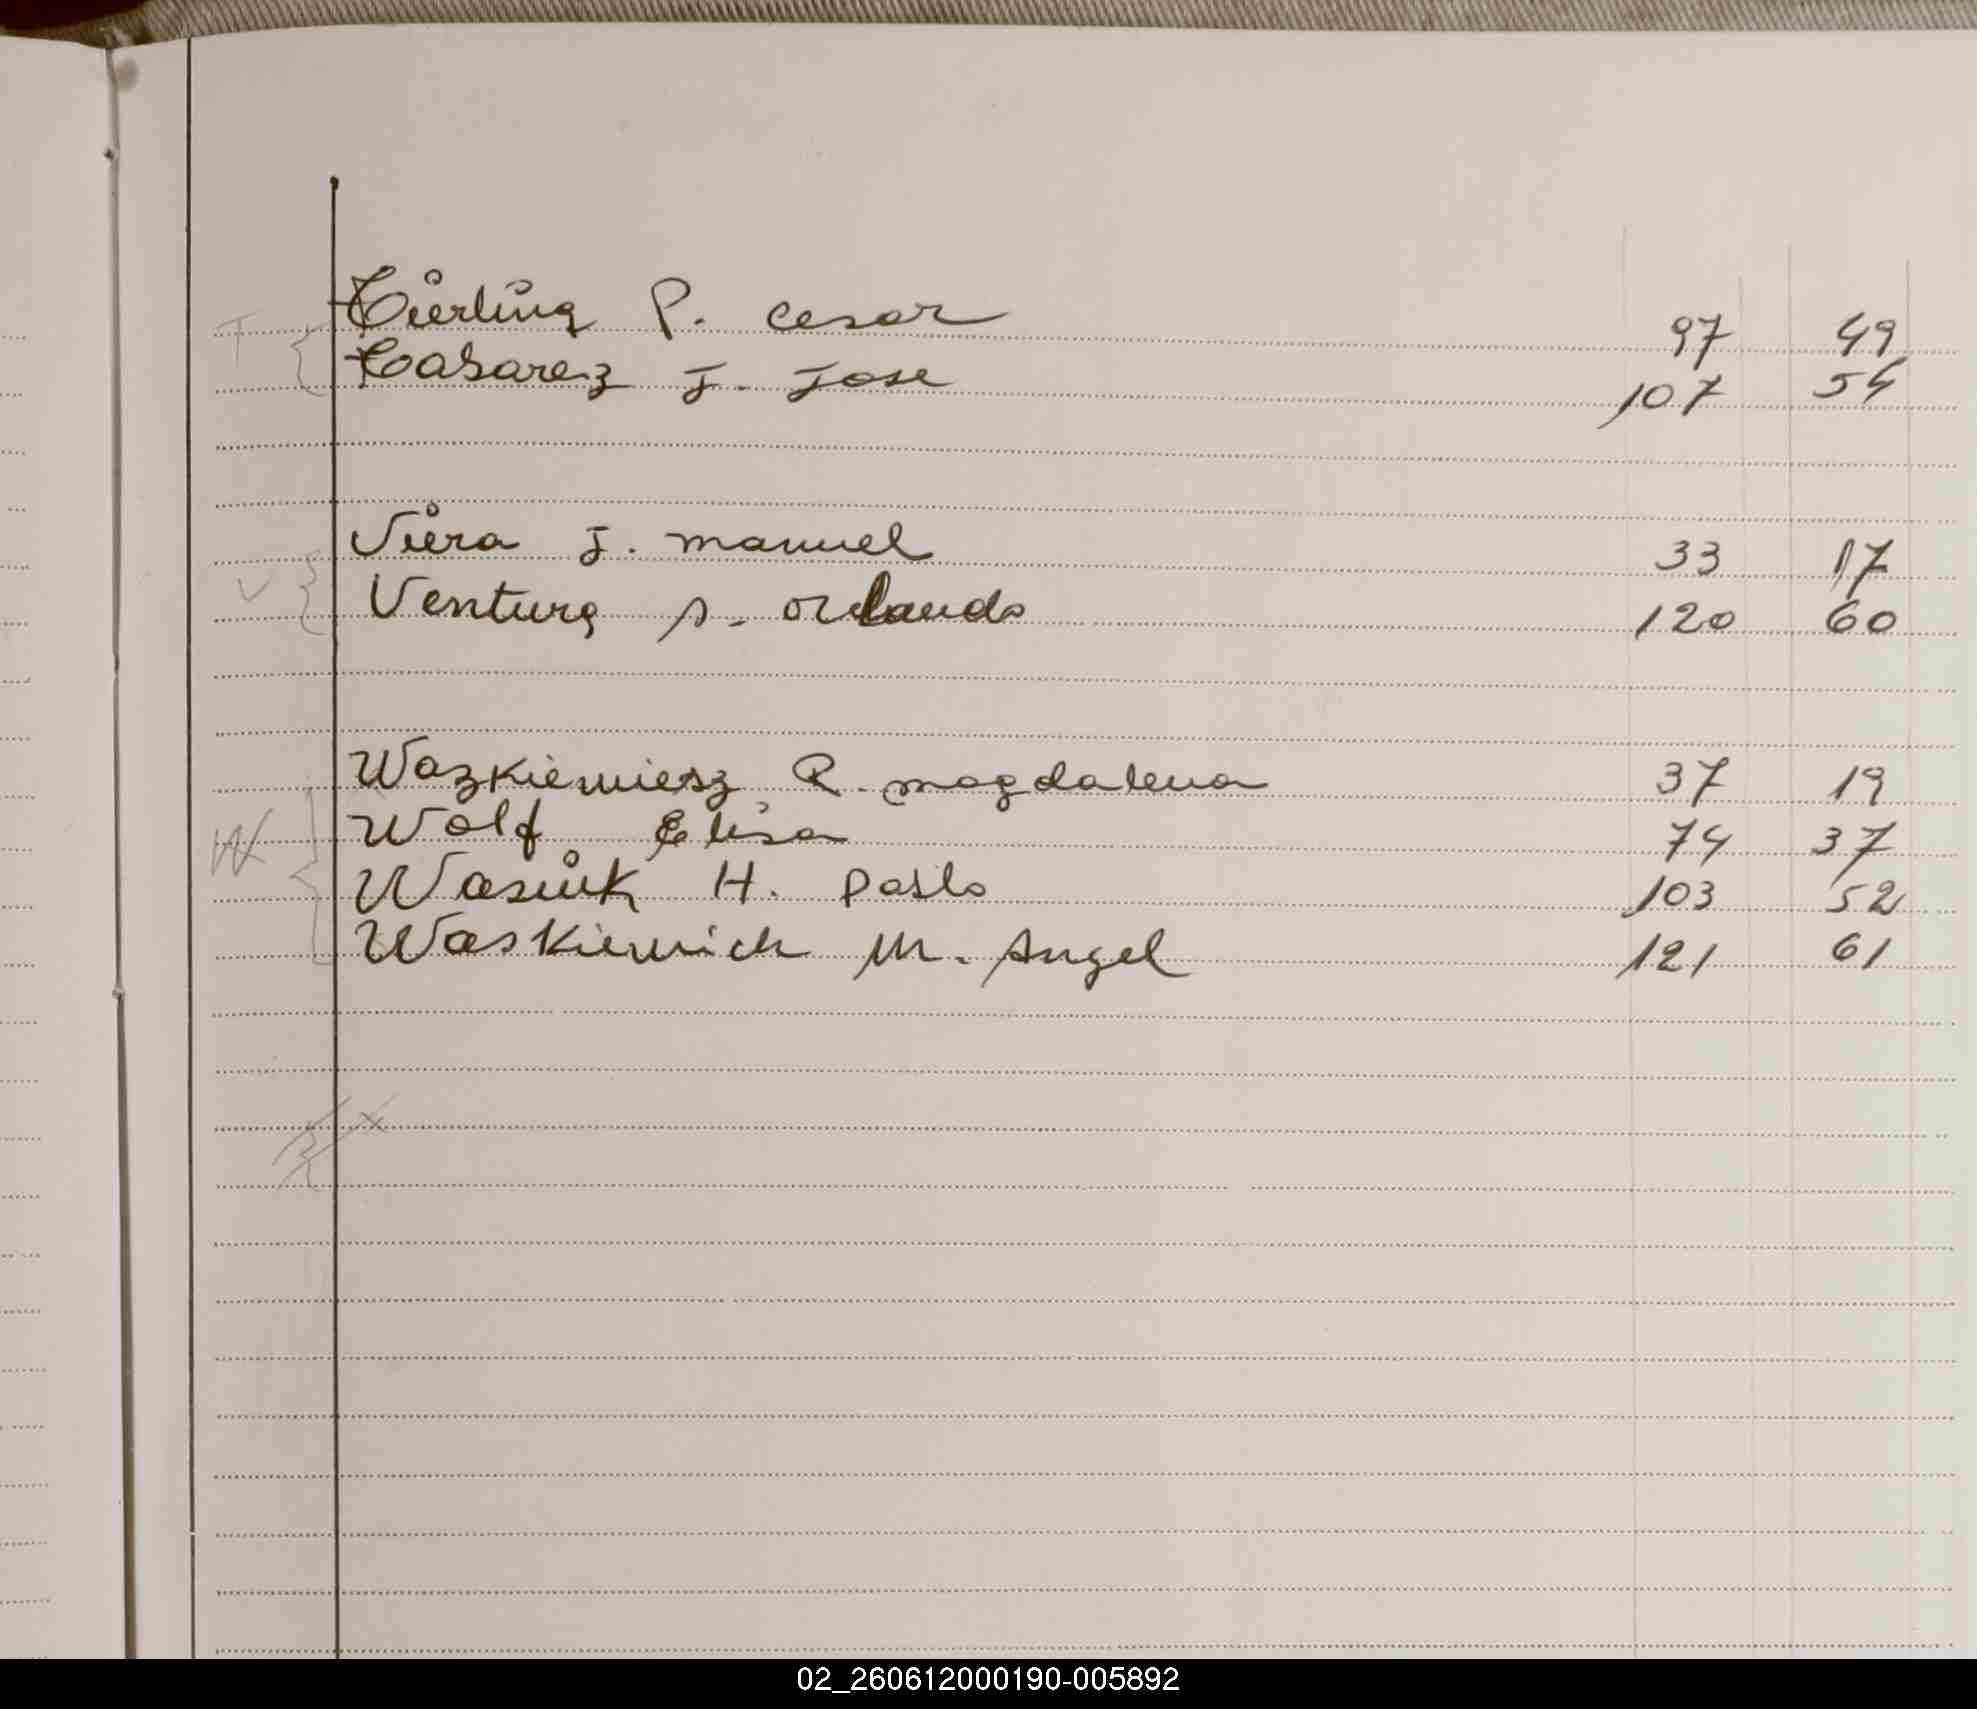 T { Tierling P. Cesar 97 49
Tabarez J. Jose 107 54
V { Viera J. manuel 33 17
Ventura S. Orlando 120 60
Wazkiewiesz R. magdalena 37 19
W { Wolf Elisa 74 37
Wasiuk H. Pablo 103 52
Waskiewich M. Angel 121 61
02_260612000190-005892